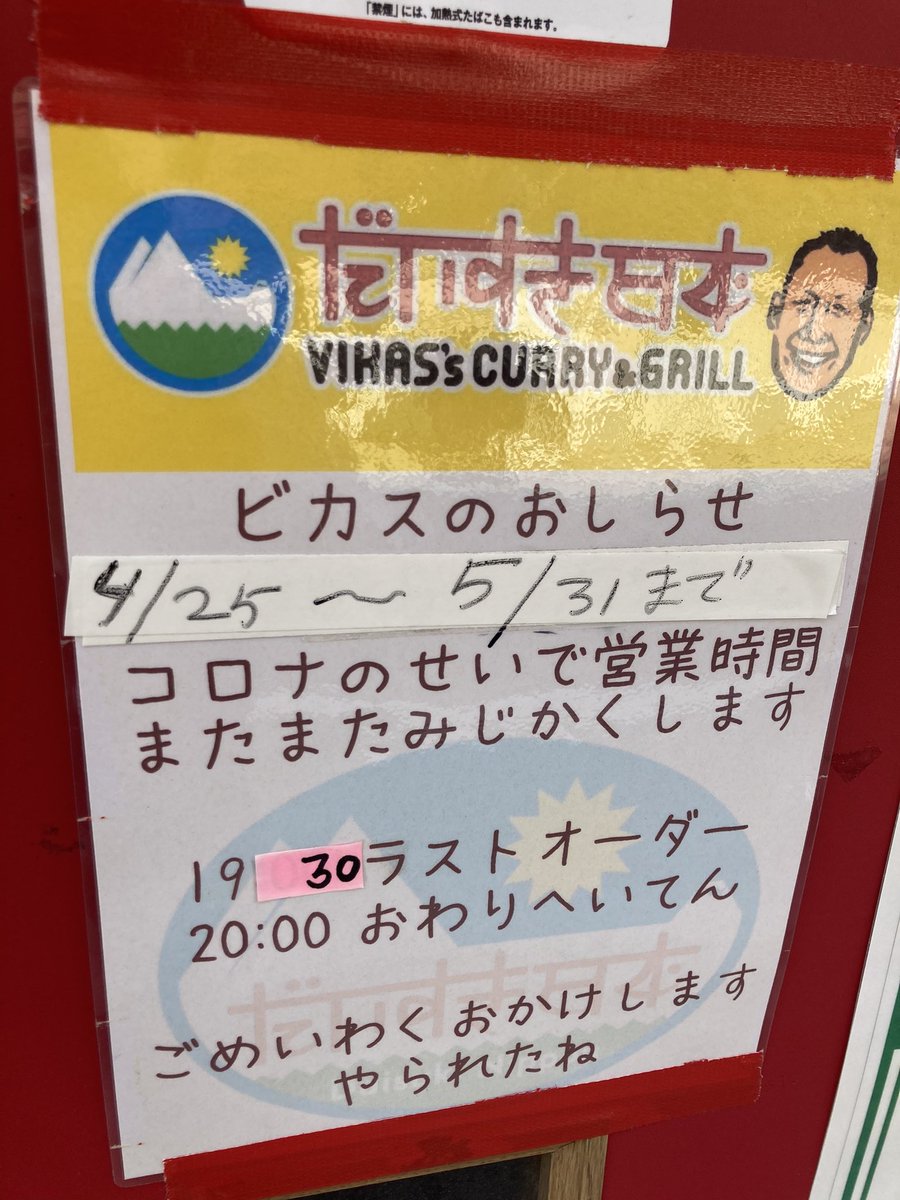 「禁煙」には、加熱式たばこも含まれます。
だいすき日本
VIKAS's CURRY & GRILL
ビカスのおしらせ
4/25 〜 5/31まで
コロナのせいで営業時間
またまたみじかくします
19 30ラストオーダー
20:00 おわりへいてん
ごめいわくおかけします
やられたね